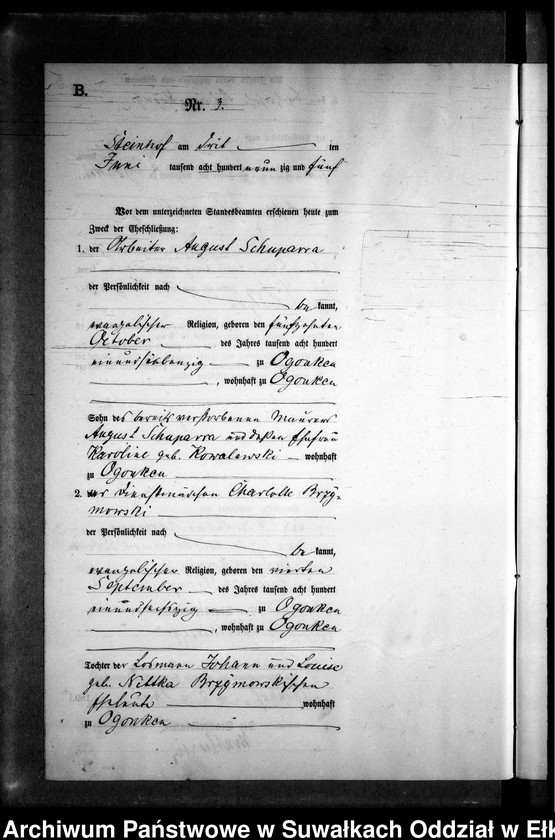 B.
Nr. 3.
Steinhof am dritten
Juni tausend acht hundert neunzig und fünf
Vor dem unterzeichneten Standesbeamten erschienen heute zum
Zweck der Eheschließung:
1. der Arbeiter August Schuparra
der Persönlichkeit nach
bekannt,
evangelischer Religion, geboren den fünfzehnten
October des Jahres tausend acht hundert
einundsiebenzig zu Ogonken
, wohnhaft zu Ogonken
Sohn des bereits verstorbenen Maurers
August Schuparra und dessen Ehefrau
Karoline geb. Kowalewski wohnhaft
zu Ogonken
2. Dienstmädchen Charlotte Brzy-
mowski
der Persönlichkeit nach
bekannt,
evangelischer Religion, geboren den vierten
September des Jahres tausend acht hundert
einundsechszig zu Ogonken
, wohnhaft zu Ogonken
Tochter der Losmann Johann und Louise
geb. Nittka Brzymowskischen
Eheleute wohnhaft
zu Ogonken
Archiwum Państwowe w Suwałkach Oddział w Ełk